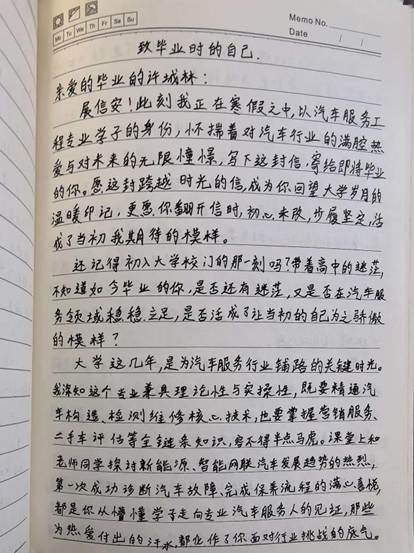 Memo No.
Mo Tu We Th Fr Sa Su
Date / /
致毕业时的自己.
亲爱的毕业的许城林:
展信安!此刻我正在寒假之中,以汽车服务工
程专业学子的身份,怀揣着对汽车行业的满腔热
爱与对未来的无限憧憬,写下这封信,寄给即将毕业
的你。愿这封跨越时光的信,成为你回望大学岁月的
温暖印记,更愿你翻开信时,初心未改,步履坚定,活
成了当初我期待的模样。
还记得初入大学校门的那一刻吗?带着高中的迷茫,
不知道如今毕业的你,是否还有迷茫,又是否在汽车服
务领域稳稳立足,是否活成了让当初的自己为之骄傲
的模样?
大学这几年,是为汽车服务行业铺路的关键时光。
我深知这个专业兼具理论性与实操性,既要精通汽
车构造、检测维修核心技术,也要掌握营销服务、
二手车评估等全链条知识,容不得半点马虎。课堂上和
老师同学探讨新能源、智能网联汽车发展趋势的热烈,
第一次成功诊断汽车故障、完成保养流程的满心喜悦,
都是你从懵懂学子走向专业汽车服务人的见证,那些
为热爱付出的汗水,都化作了你面对行业挑战的底气。